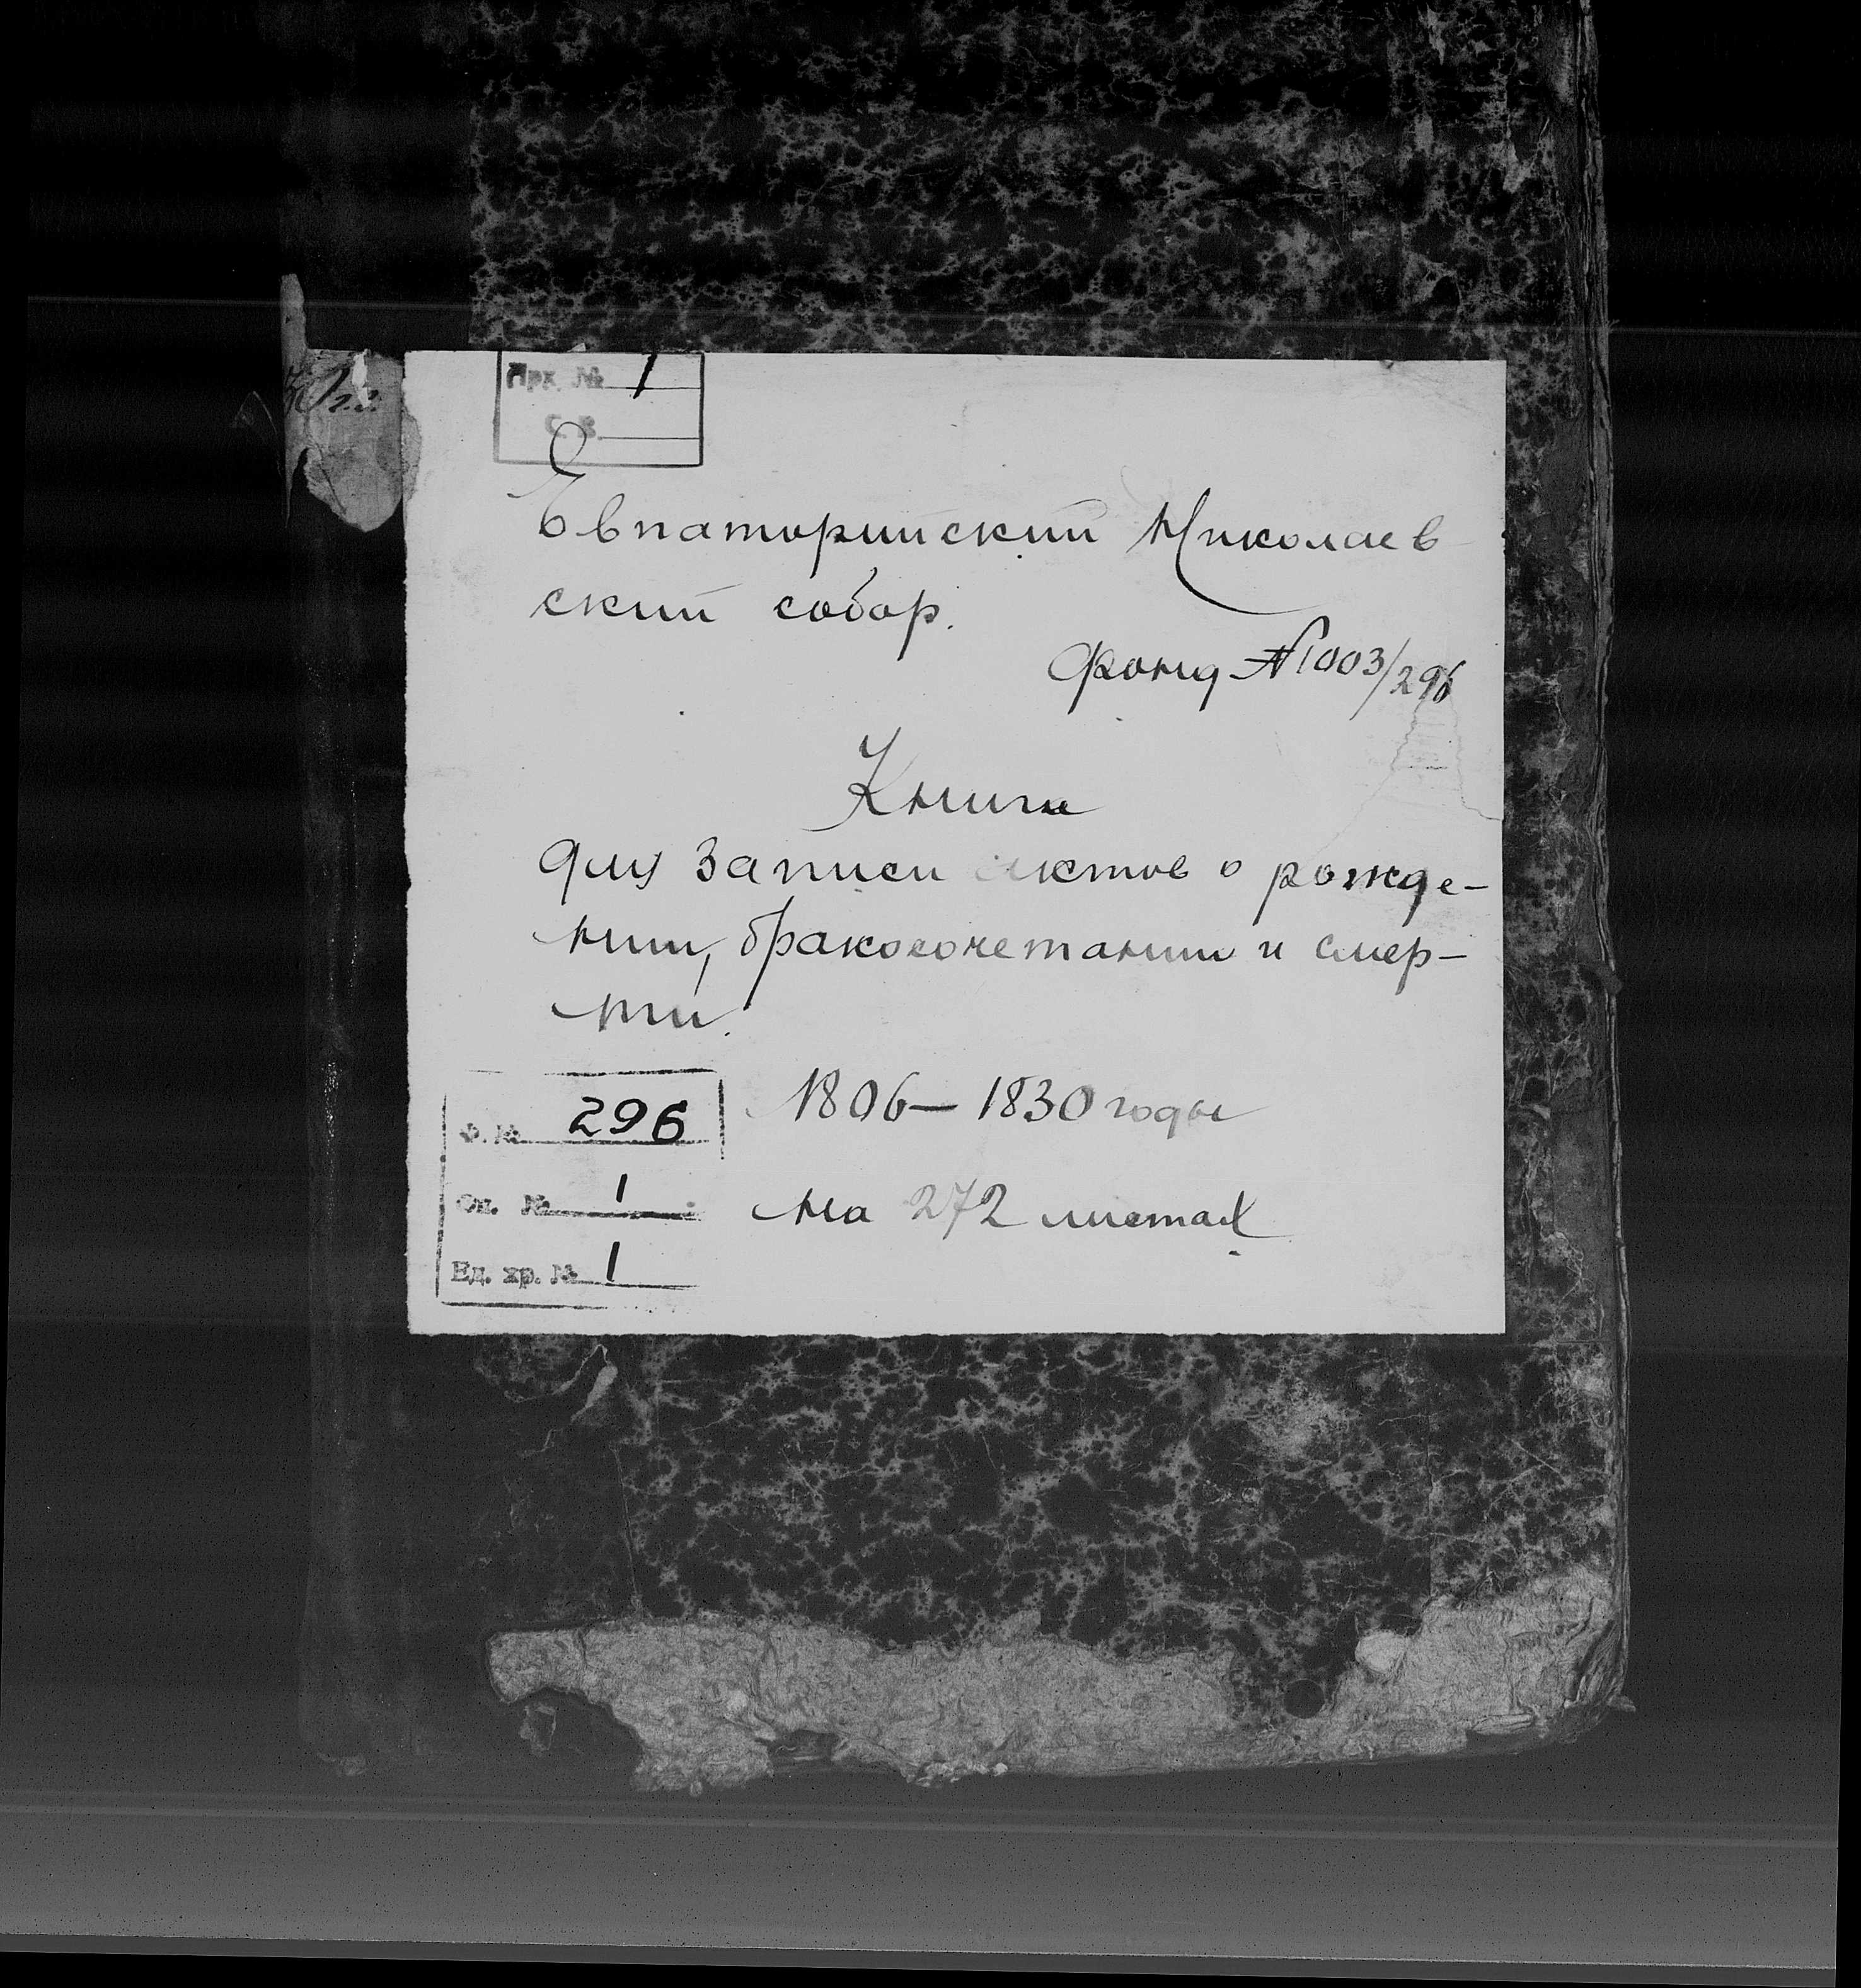 Арх. № 1
С. В.
Евпаторийский Николаев
ский собор.
Фонд №1003/296
Книга
для записи актов о рожде-
нии, бракосочетании и смер-
ти.
1806–1830 годы
Ф. № 296
На 272 листах
Оп. № 1
Ед. хр. № 1